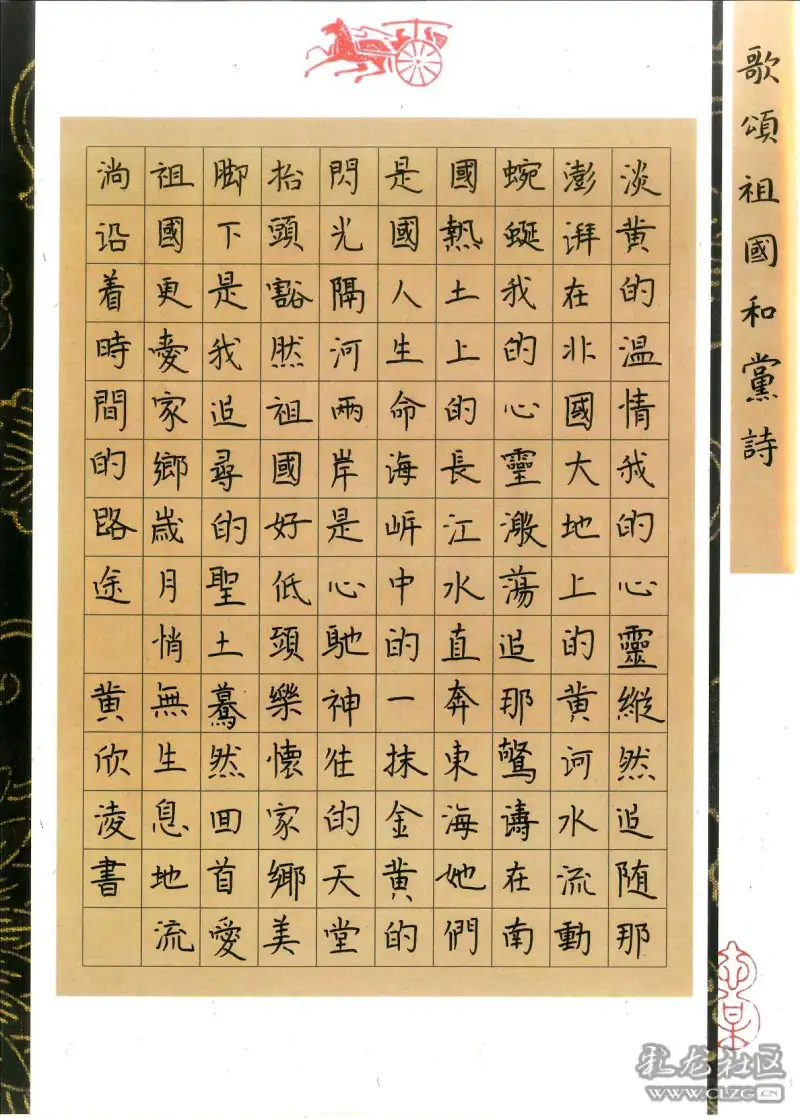 歌頌祖國和黨詩
淡黄的温情我的心靈縱然追随那
澎湃在北國大地上的黄河水流動
蜿蜒我的心靈激蕩追那驚濤在南
國熱土上的長江水直奔東海她們
是國人生命海岍中的一抹金黄的
閃光隔河兩岸是心馳神往的天堂
抬頭豁然祖國好低頭樂懷家鄉美
脚下是我追尋的聖土驀然回首愛
祖國更愛家鄉歲月悄無生息地流
淌沿着時間的路途 黄欣淩書
乳龙社区
WWW.CLZG.CN